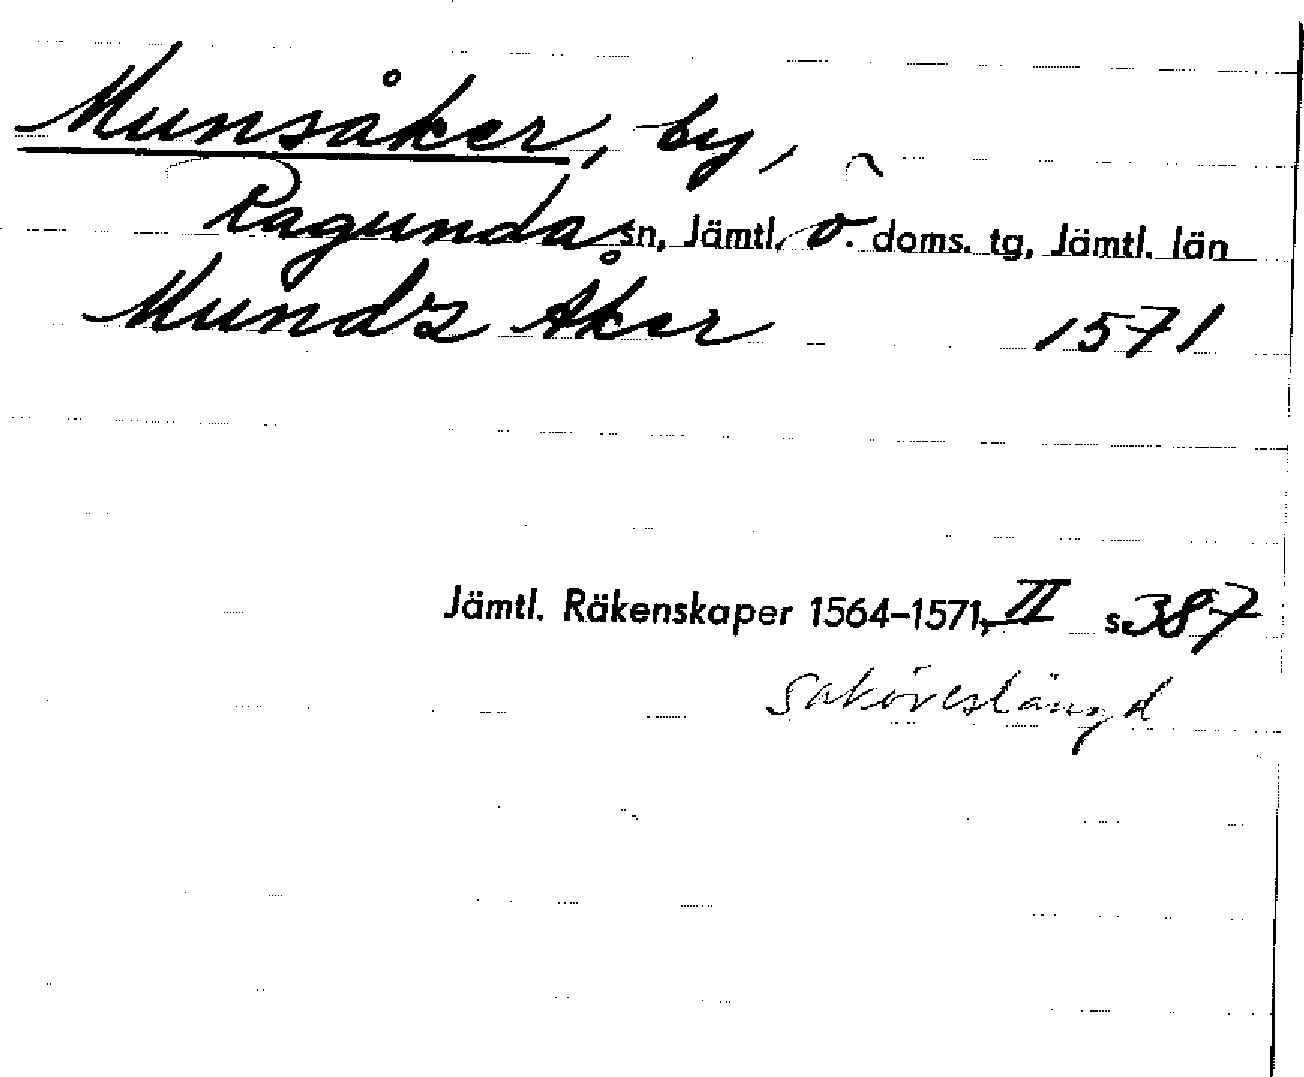 Munsåker, by,
Ragunda sn, Jämtl. ö. doms. tg, Jämtl. län
Mundz Åker 1571
Jämtl. Räkenskaper 1564–1571, II s. 387
saköreslängd